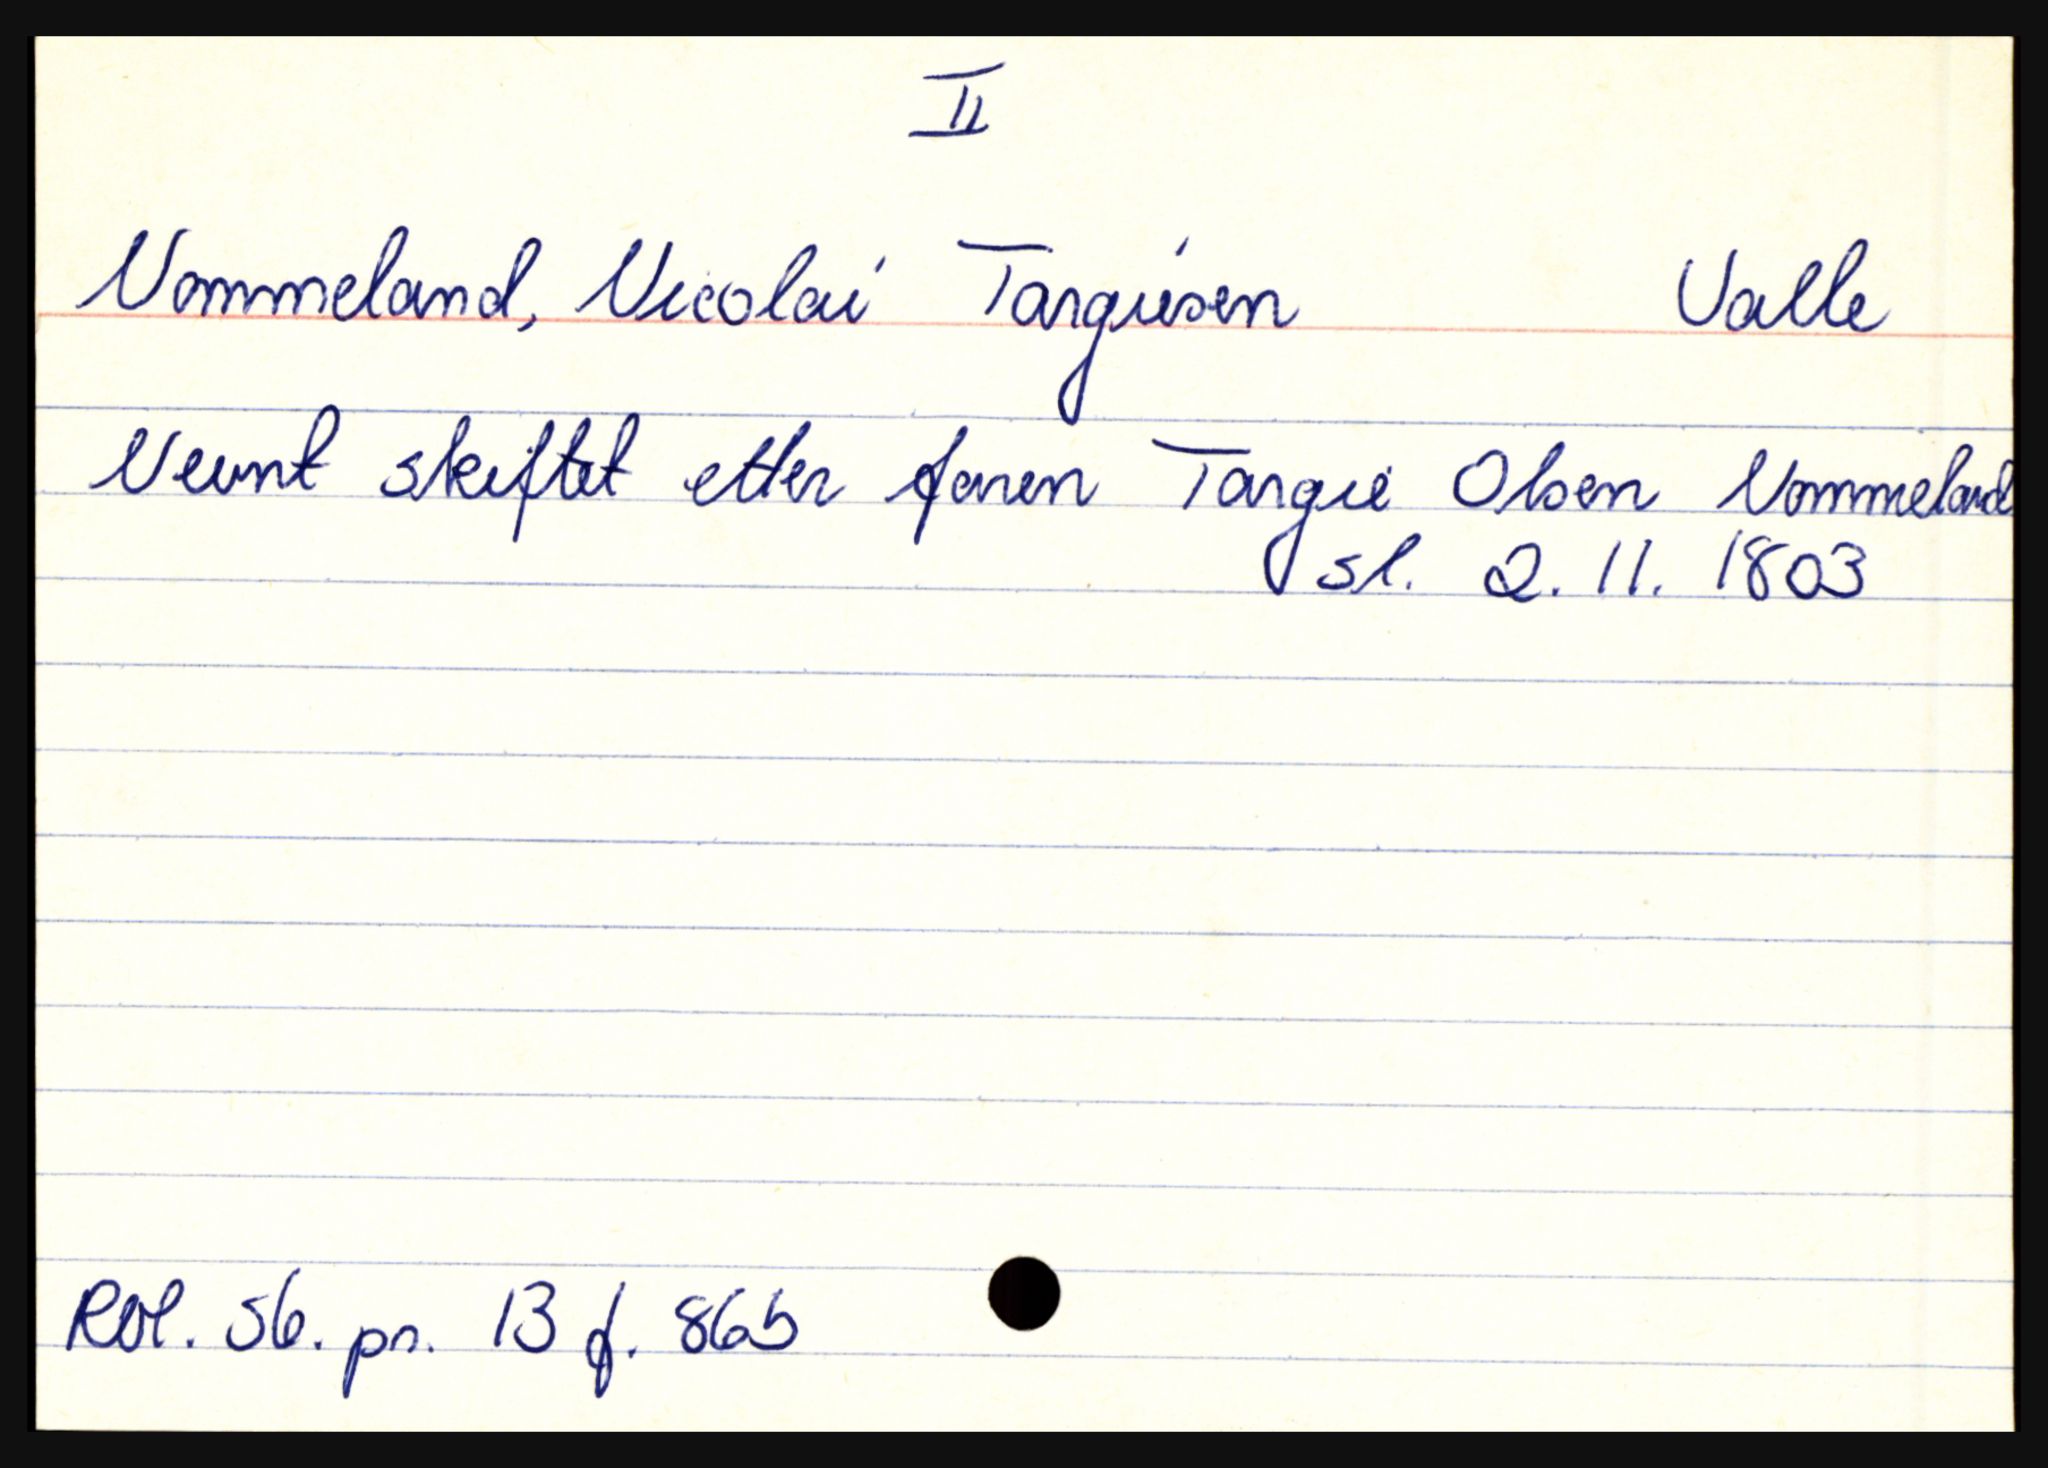 II
Nommeland, Nicolai Targiesen Valle
Nevnt skiftet etter faren Targie Olsen Nommeland
sl. 2. 11. 1803
Rbl. 56. pr. 13 f. 86b